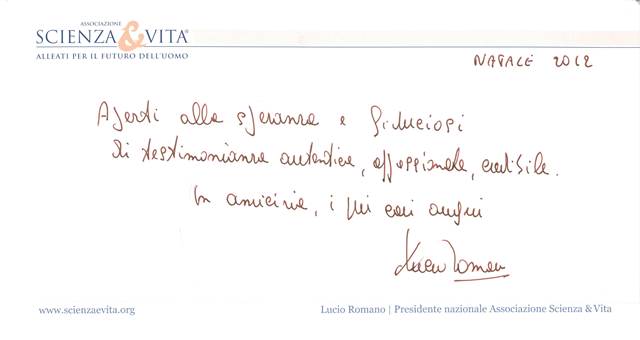 ASSOCIAZIONE
SCIENZA & VITA®
ALLEATI PER IL FUTURO DELL'UOMO
NATALE 2012
Aperti alla speranza e fiduciosi
di testimonianza autentica, appassionata, credibile.
In amicizia, i più cari auguri
Lucio Romano
www.scienzaevita.org
Lucio Romano | Presidente nazionale Associazione Scienza & Vita